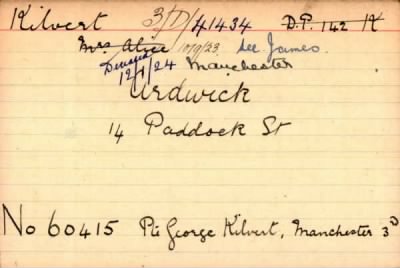 Kilvert 3/D/41434 D.P. 142 K
Mrs Alice 10/9/23. See James.
Deceased 12/1/24 Manchester
Ardwick
14 Paddock St
No 60415 Pte George Kilvert, Manchester 3D